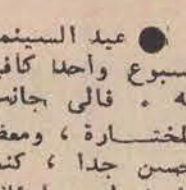 ● عيد السينم
سبوع واحدا كافي
ه . فالى جانب
لختـــارة ، ومعظ
حسن جدا ، كنت